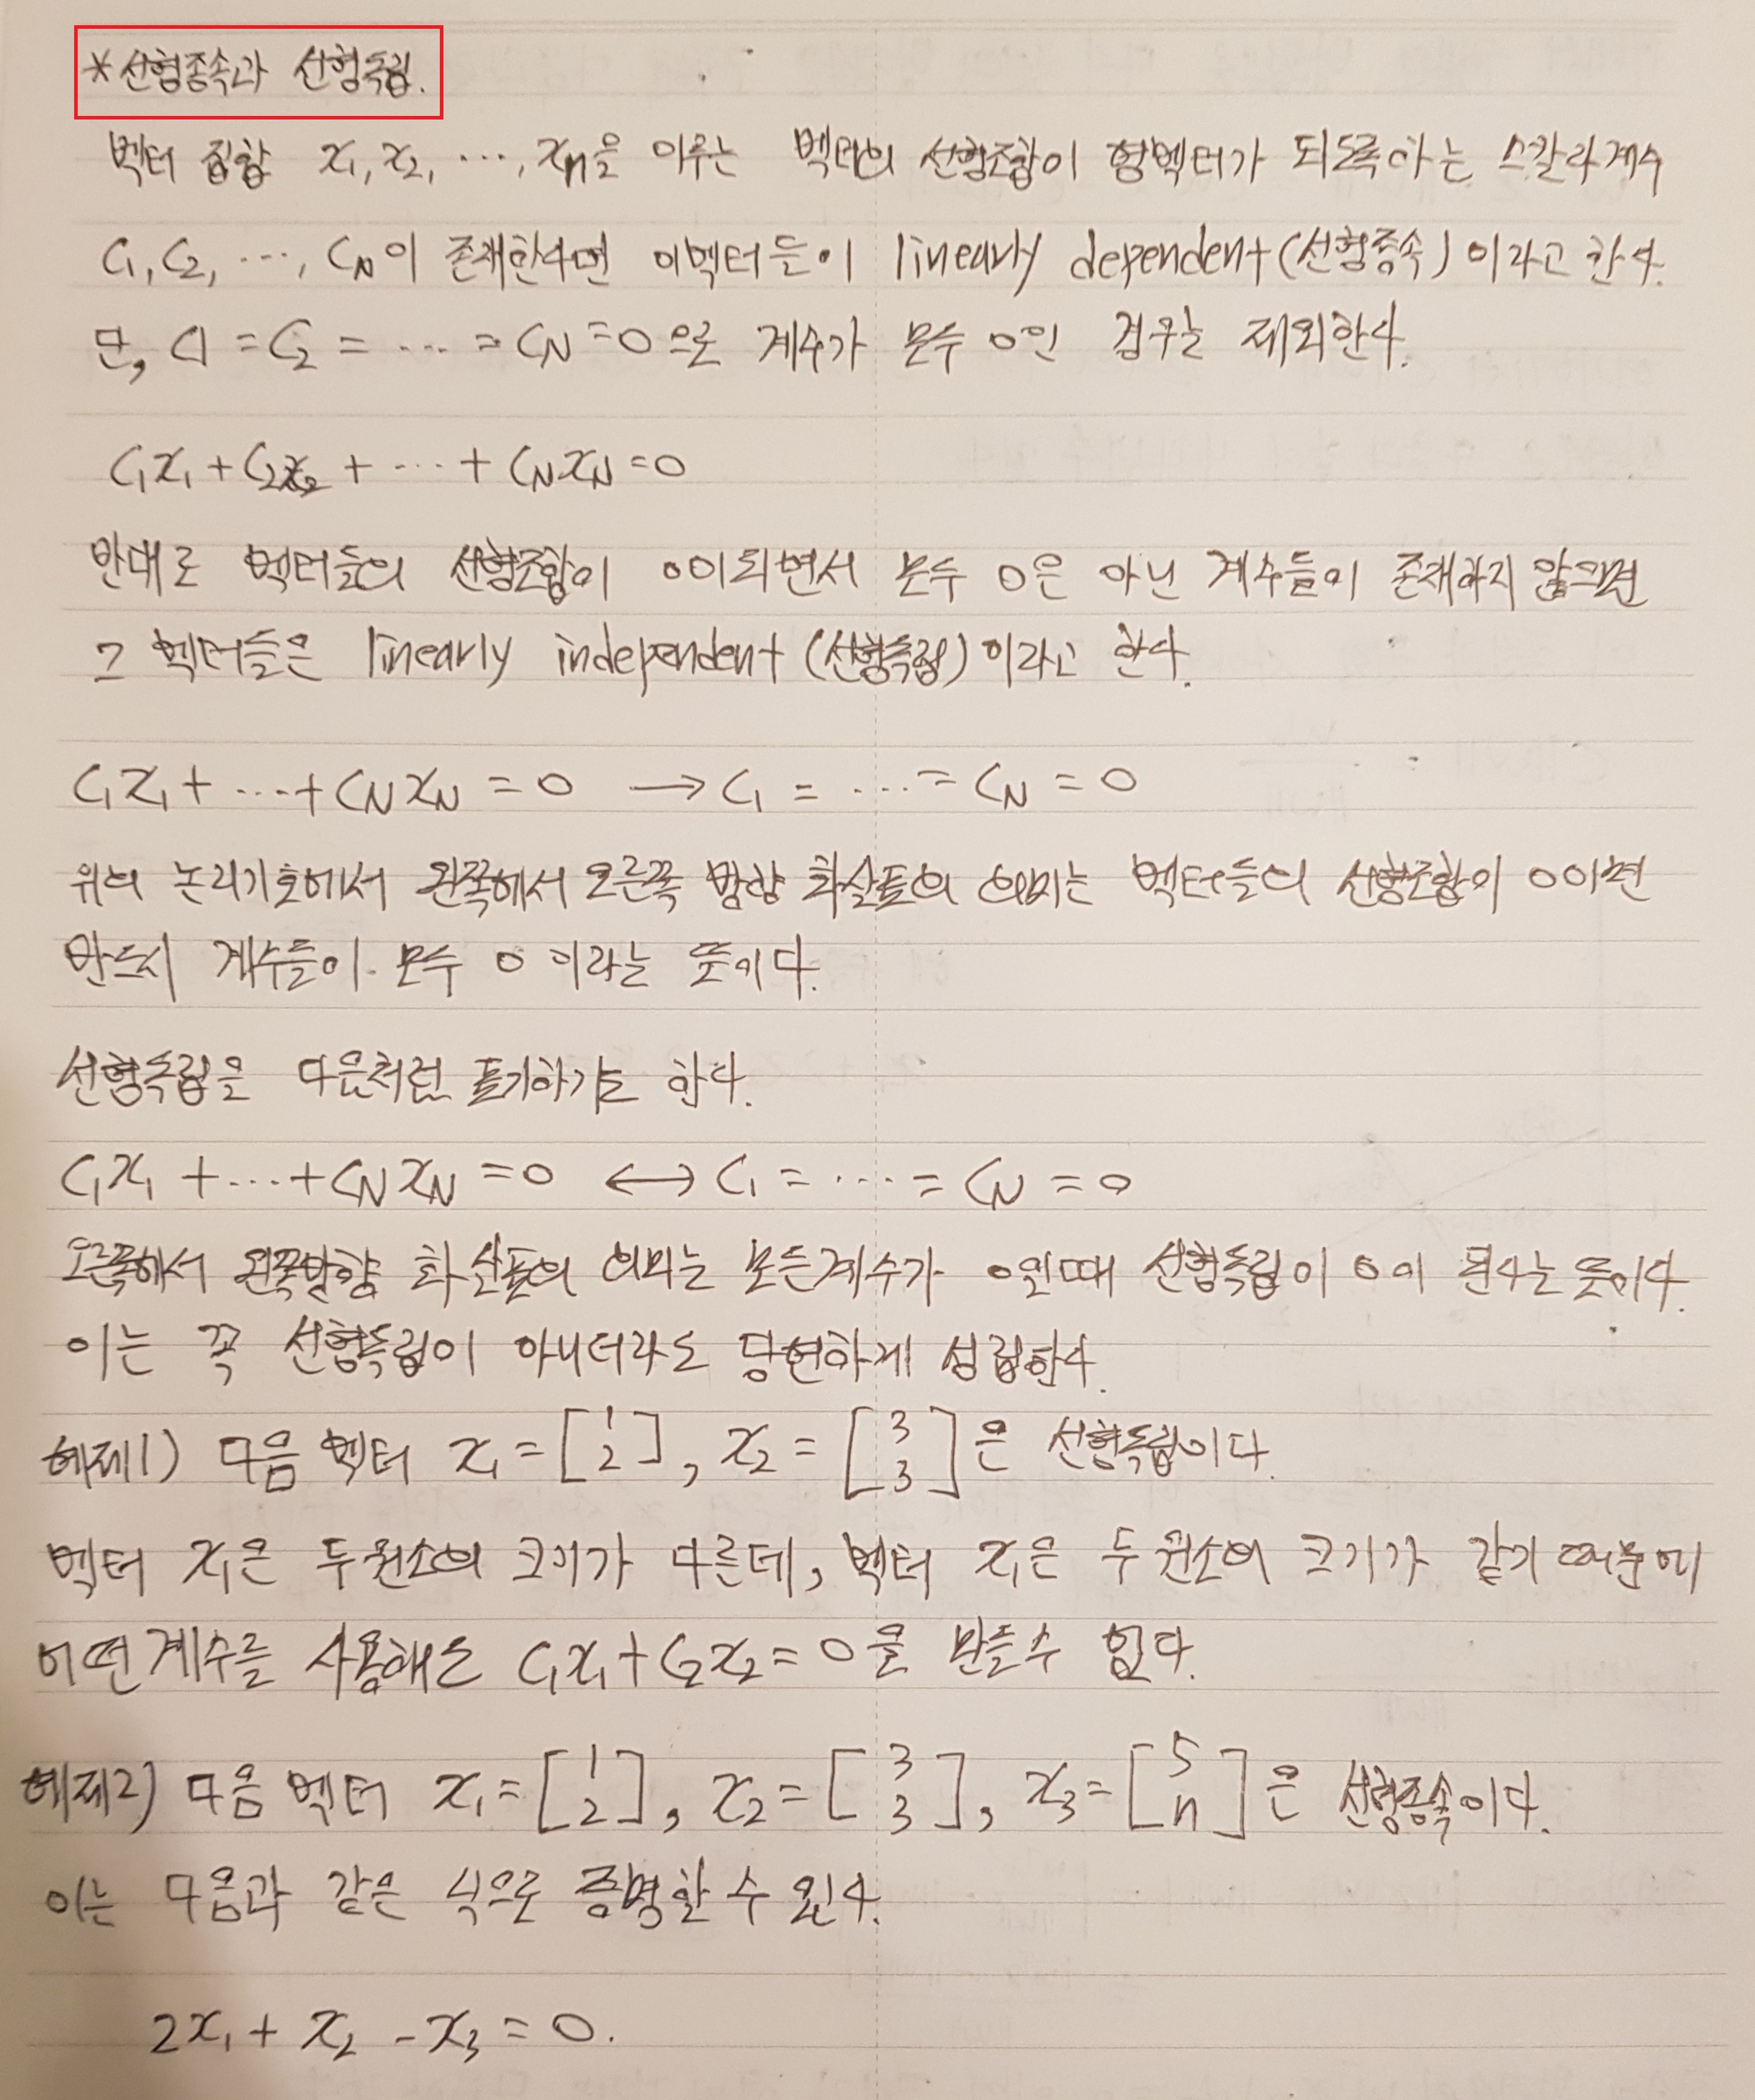 *선형종속과 선형독립.
벡터 집합 x₁, x₂, ..., xₙ을 이루는 벡터의 선형조합이 영벡터가 되도록하는 스칼라계수
C₁, C₂, ..., C_N이 존재한다면 이벡터들이 linearly dependent(선형종속)이라고 한다.
단, C₁ = C₂ = ... = C_N = 0으로 계수가 모두 0인 경우는 제외한다.
C₁x₁ + C₂x₂ + ... + C_N x_N = 0
반대로 벡터들의 선형조합이 0이되면서 모두 0은 아닌 계수들이 존재하지 않으면
그 벡터들은 linearly independent(선형독립)이라고 한다.
C₁x₁ + ... + C_N x_N = 0 → C₁ = ... = C_N = 0
위의 논리기호에서 왼쪽에서 오른쪽 방향 화살표의 의미는 벡터들의 선형조합이 0이면
반드시 계수들이 모두 0 이라는 뜻이다.
선형독립을 다음처럼 표기하기도 한다.
C₁x₁ + ... + C_N x_N = 0 ↔ C₁ = ... = C_N = 0
오른쪽에서 왼쪽방향 화살표의 의미는 모든계수가 0일때 선형독립이 0이 된다는 뜻이다.
이는 꼭 선형독립이 아니더라도 당연하게 성립한다.
예제1) 다음 벡터 x₁ = [1 2], x₂ = [3 3]은 선형독립이다.
벡터 x₁은 두원소의 크기가 다른데, 벡터 x₁은 두원소의 크기가 같기 때문에
어떤계수를 사용해도 C₁x₁ + C₂x₂ = 0을 만들수 없다.
예제2) 다음 벡터 x₁ = [1 2], x₂ = [3 3], x₃ = [5 n]은 선형종속이다.
이는 다음과 같은 식으로 증명할 수 있다.
2x₁ + x₂ - x₃ = 0.